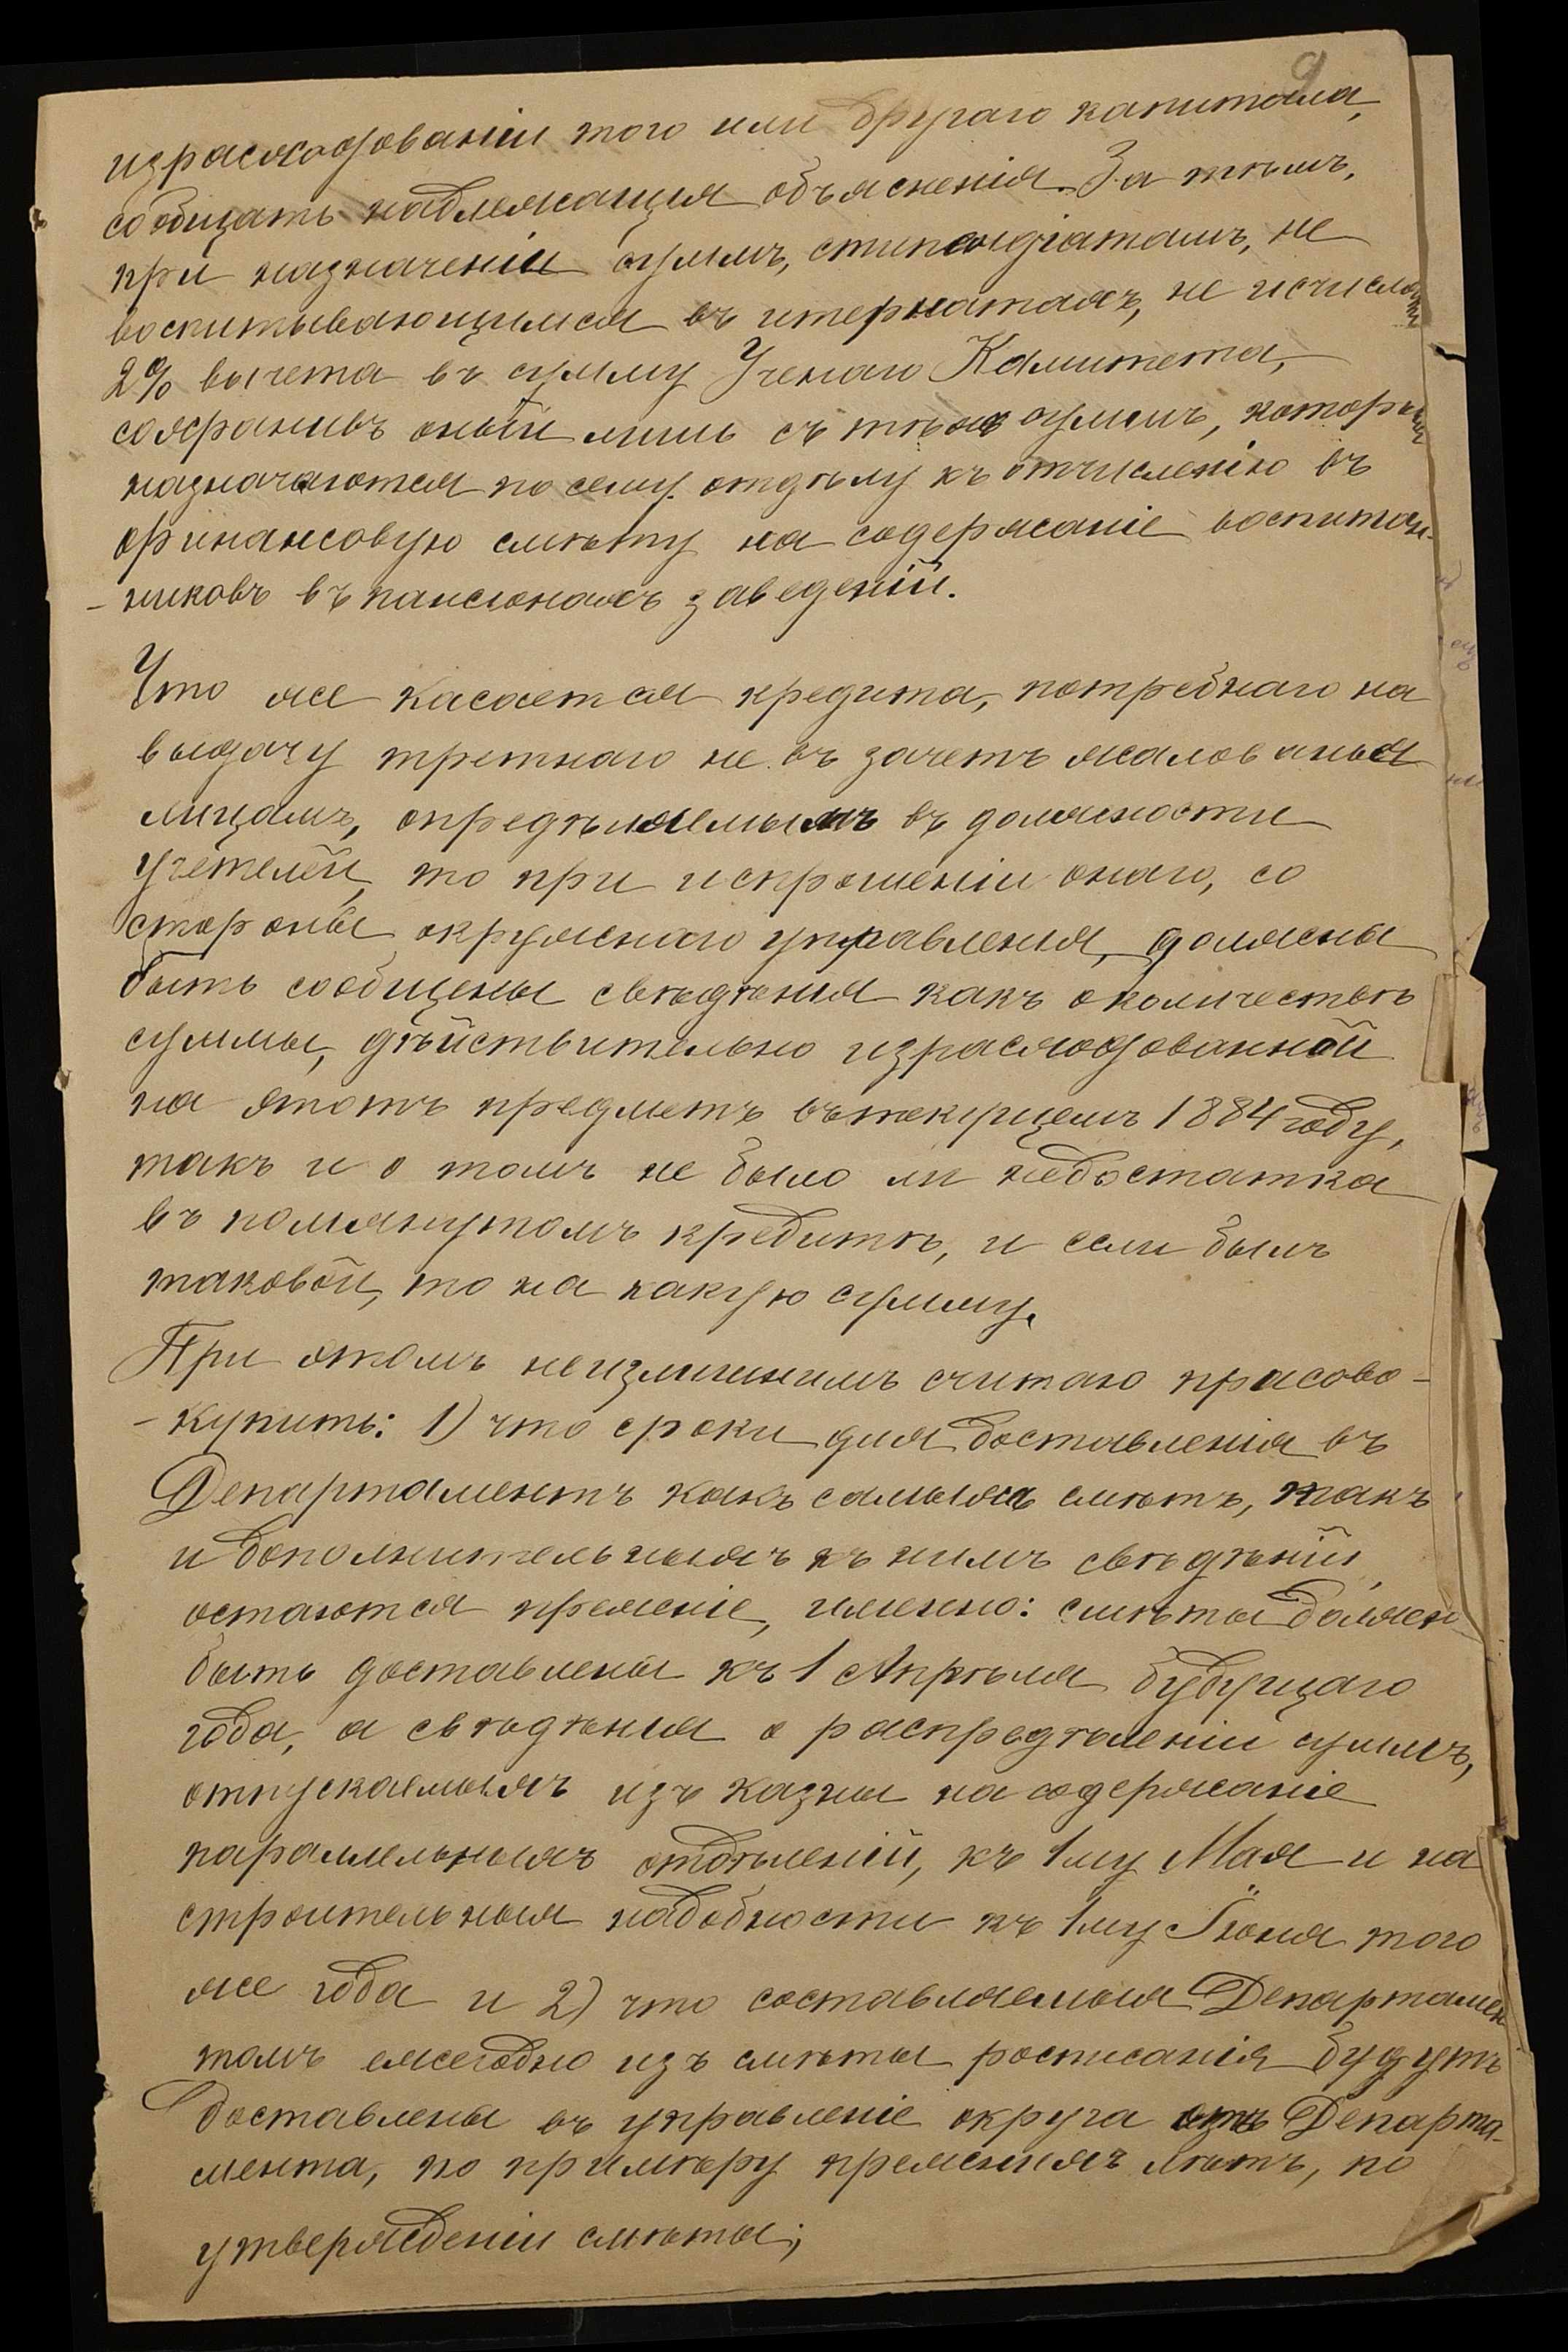 9
израсходованіи того или другаго капитала,
сообщать надлежащія объясненія. За тѣмъ,
при назначеніи суммъ, стипендіатамъ, не
воспитывающимся въ итернатахъ, не исчислять
2% вычета въ сумму Ученаго Комитета,
сохранивъ оный лишь съ тѣхъ суммъ, которыя
назначаются по сему отдѣлу къ отчисленію въ
финансовую смѣту на содержаніе воспитан-
-никовъ въ пансіонахъ заведеній.
Что же касается кредита, потребнаго на
выдачу третнаго не въ зачетъ жалованья
лицамъ, опредѣляемымъ въ должности
учителей, то при испрошеніи онаго, со
стороны окружнаго управленія, должны
быть сообщены свѣдѣнія какъ о количествѣ
суммы, дѣйствительно израсходованной
на этотъ предметъ въ текущемъ 1884 году,
такъ и о томъ не было ли недостатка
въ помянутомъ кредитѣ, и если былъ
таковой, то на какую сумму.
При этомъ неизлишнимъ считаю присово-
-купить: 1) что сроки для доставленія въ
Департаментъ какъ самыхъ смѣтъ, такъ
и дополнительныхъ къ нимъ свѣдѣній,
остаются прежніе, именно: смѣты должны
быть доставлены къ 1 Апрѣля будущаго
года, а свѣдѣнія о распредѣленіи суммъ,
отпускаемыхъ изъ казны на содержаніе
параллельныхъ отдѣленій, къ 1му Мая и на
строительныя надобности къ 1му Іюня того
же года и 2) что составляемыя Департамен
томъ ежегодно изъ смѣты росписанія будутъ
доставлены въ управленіе округа отъ Департа-
мента, по примѣру прежнихъ лѣтъ, по
утвержденіи смѣты;